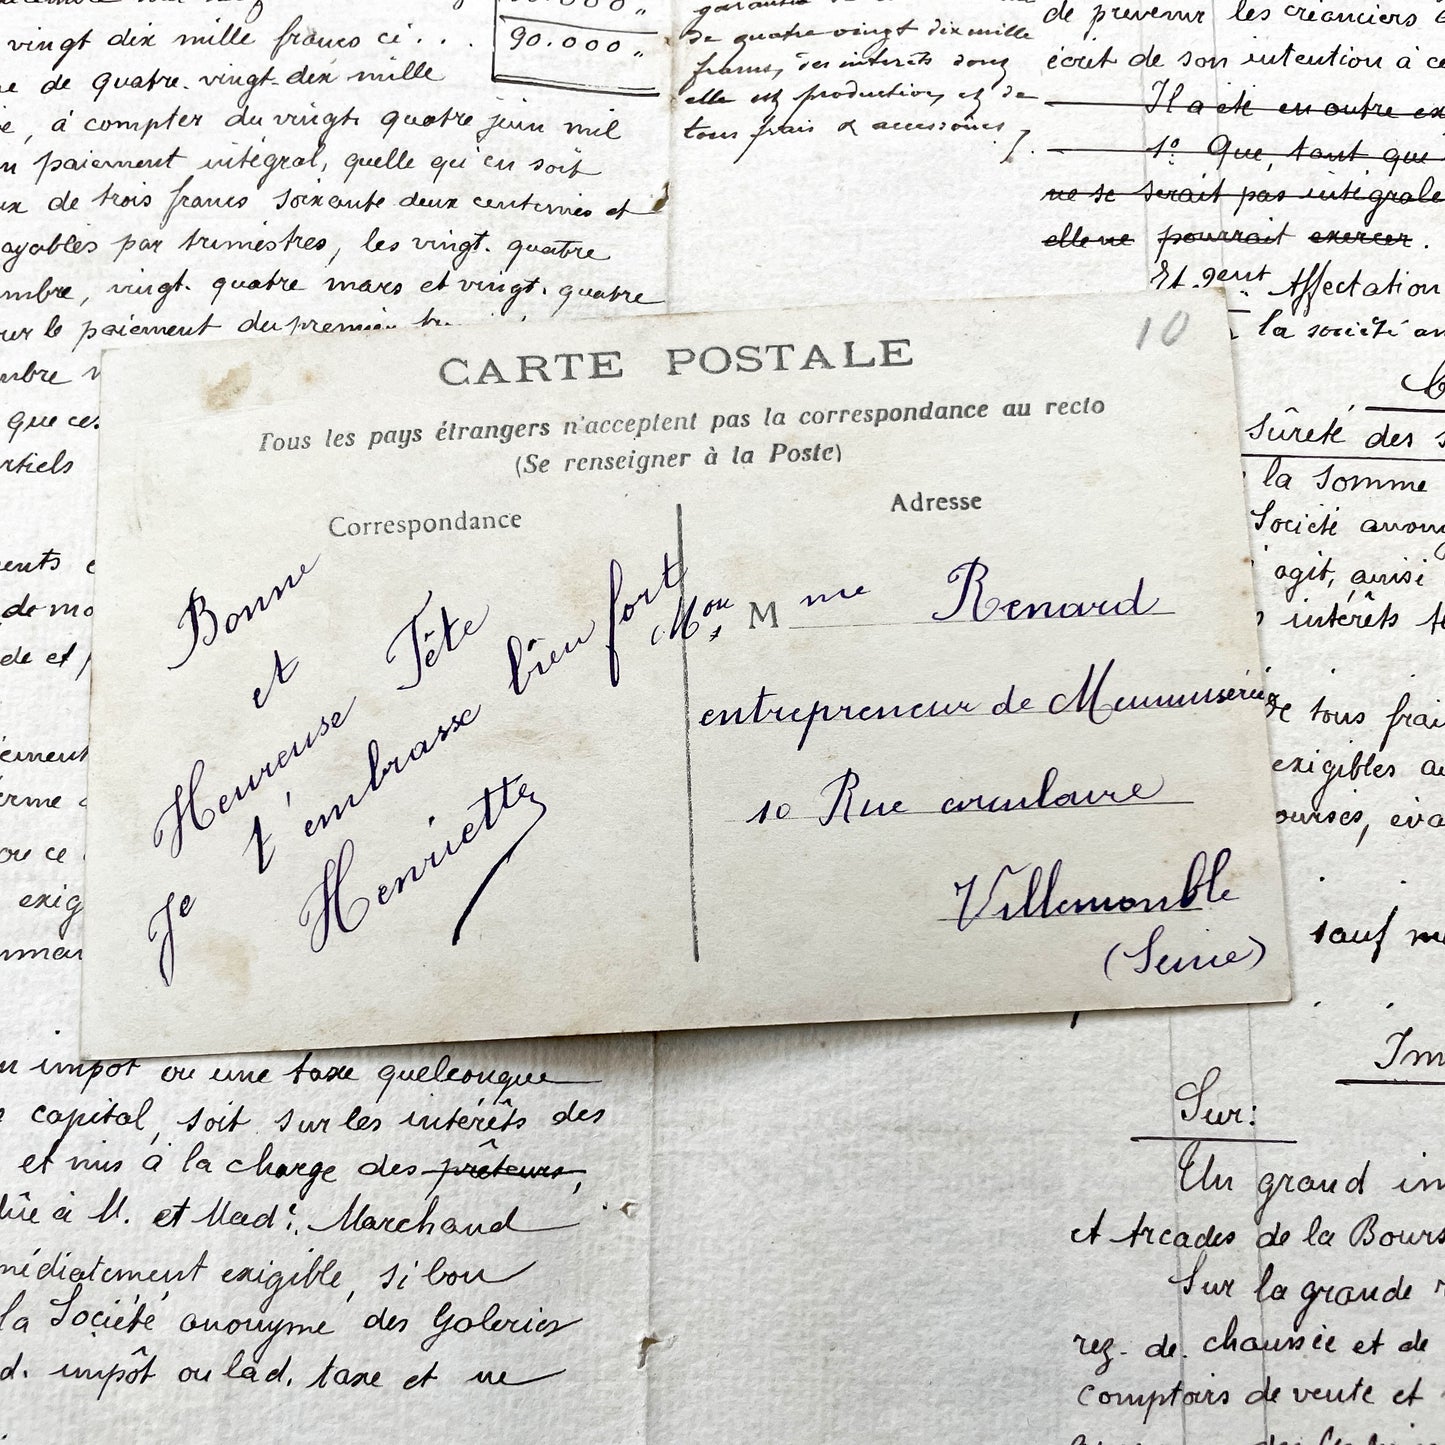 vingt dix mille francs ci . . .
90.000 "
de quatre. vingt-dix mille
, à compter du vingt. quatre juin mil
paiement intégral, quelle qu'en soit
de trois francs soixante deux centimes et
par trimestres, les vingt. quatre
vingt. quatre mars et vingt. quatre
le paiement du premier
que ces
de quatre vingt dix mille
francs, des intérêts dont
elle est production, et de
tous frais & accessoires
de prévenir les créanciers
écrit de son intention à
Il a été en outre
1º. Que, tant que
ne se serait pas
elle ne pourrait exercer.
Et. gent Affectation
la société
Sûreté des
la somme
Société
agit, ainsi
intérêts
tous
exigibles
sauf
CARTE POSTALE
10
Tous les pays étrangers n'acceptent pas la correspondance au recto
(Se renseigner à la Poste)
Correspondance
Bonne
et
Heureuse Fête
Je t'embrasse bien fort
Henriette
Adresse
Mon
s
Mme Renard
entrepreneur de Menuiserie
10 Rue circulaire
Villemomble
(Seine)
impôt ou une taxe quelconque
capital, soit sur les intérêts des
et mis à la charge des prêteurs,
à M. et Made. Marchand
exigible, si bon
la Société anonyme des Galeries
d. impôt ou lad. taxe et ne
Sur:
Un grand
et Arcades de la
Sur la grande
rez. de. chaussée et de
comptoirs de vente et